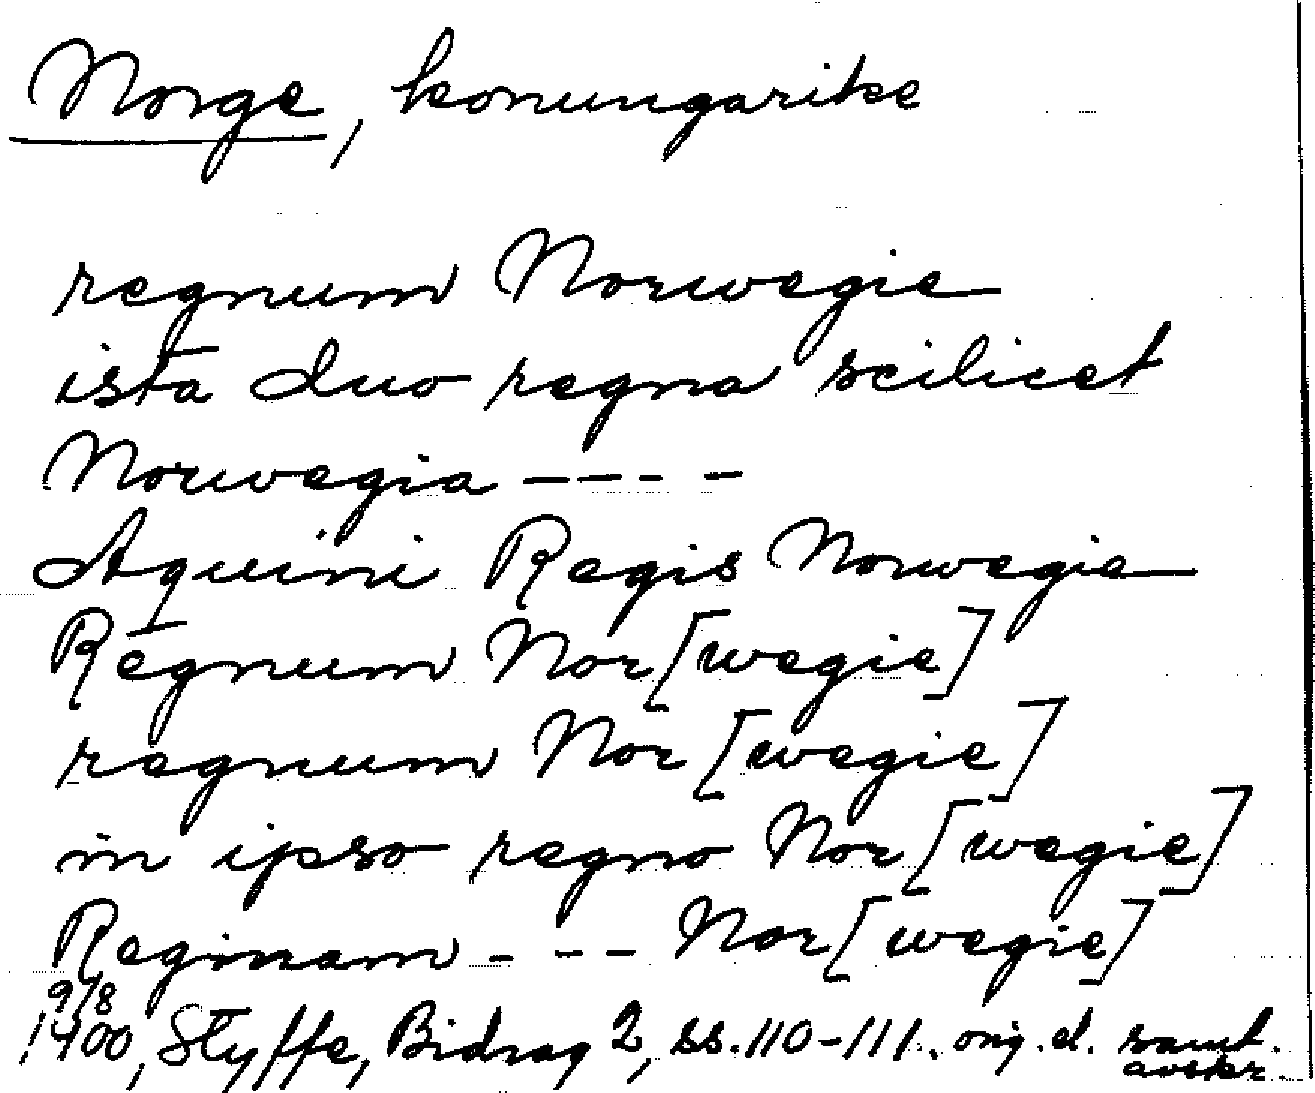 Norge, konungarike
regnum Norwegie
ista duo regna scilicet
Norwegia - - - -
Aquini Regis Norwegie
Regnum Nor[wegie]
regnum Nor[wegie]
in ipso regno Nor[wegie]
Reginam - - - Nor[wegie]
9/8
1400, Styffe, Bidrag 2, ss. 110-111. orig. el. samt.
avskr.